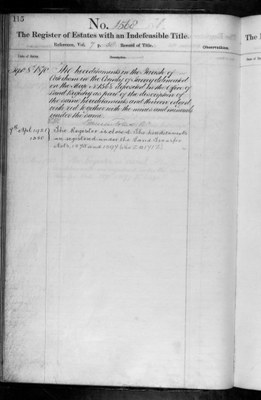 115
No. 1562
The Register of Estates with an Indefeasible Title.
Reference, Vol. 7 p. Benefit of Title.
Observations
Date of Entry.
Description
Sept 8 1870 The Hereditaments in the Parish of
in the County of Surrey delineated
on the Map No 1562 deposited in the Office of
Land Registry as part of the description of
the same Hereditaments and thereon edged
with red together with the mines and minerals
under the same.
9th Apl 1925 The Register is closed. The hereditaments
are registered under the Land Transfer
Acts, 1875 and 1897
The R